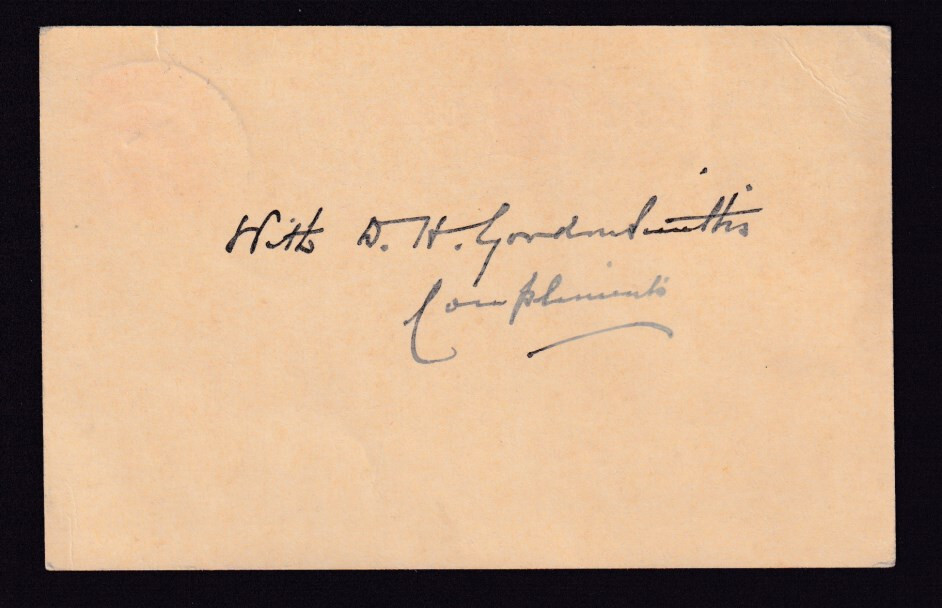 With D. H. Gordon Smith's
Compliments